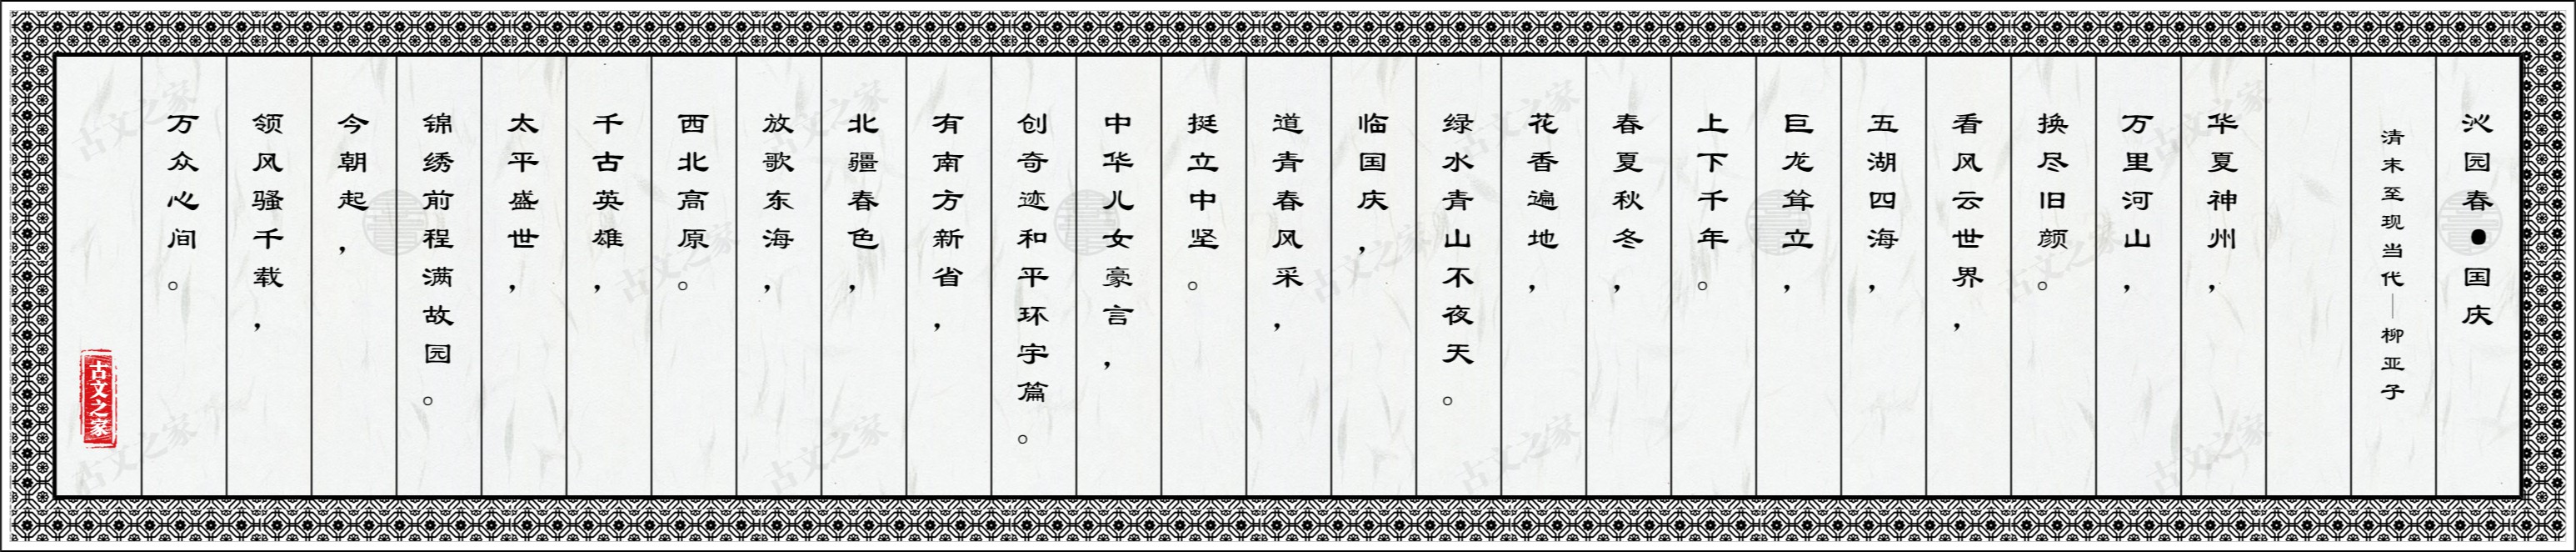 沁园春●国庆
清末至现当代—柳亚子
华夏神州，
万里河山，
换尽旧颜。
看风云世界，
五湖四海，
巨龙耸立，
上下千年。
春夏秋冬，
花香遍地，
绿水青山不夜天。
临国庆，
道青春风采，
挺立中坚。
中华儿女豪言，
创奇迹和平环宇篇。
有南方新省，
北疆春色，
放歌东海，
西北高原。
千古英雄，
太平盛世，
锦绣前程满故园。
今朝起，
领风骚千载，
万众心间。
古文之家